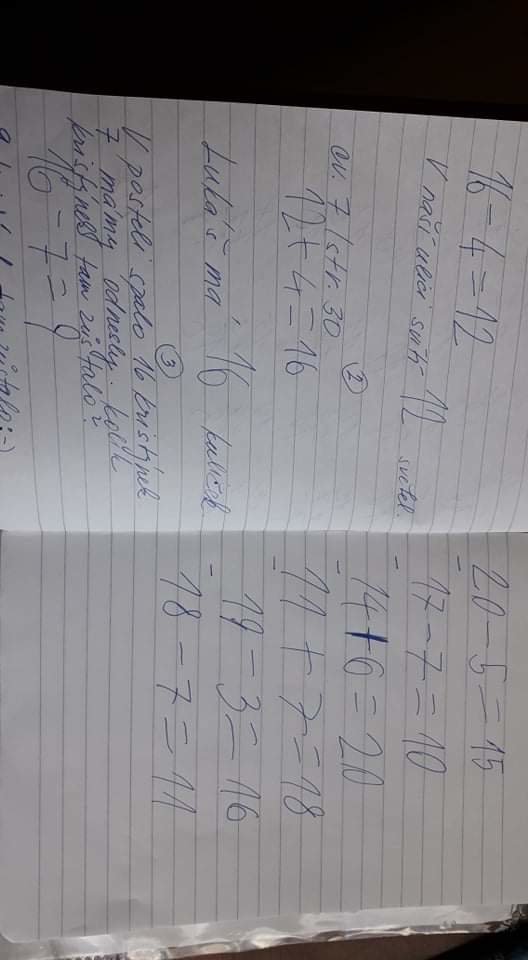 16 - 4 = 12
V naší ulici svítí 12 světel.
cv. 7 / str. 30
②
12 + 4 = 16
Lukáš má 16 kuliček
③
V posteli spalo 16 kristýnek
7 mámy odnesly. Kolik
kristýnek tam zůstalo?
16 - 7 = 9
tam zůstalo :-)
20 - 5 = 15
-
17 - 7 = 10
-
14 + 6 = 20
-
11 + 7 = 18
-
19 - 3 = 16
-
18 - 7 = 11